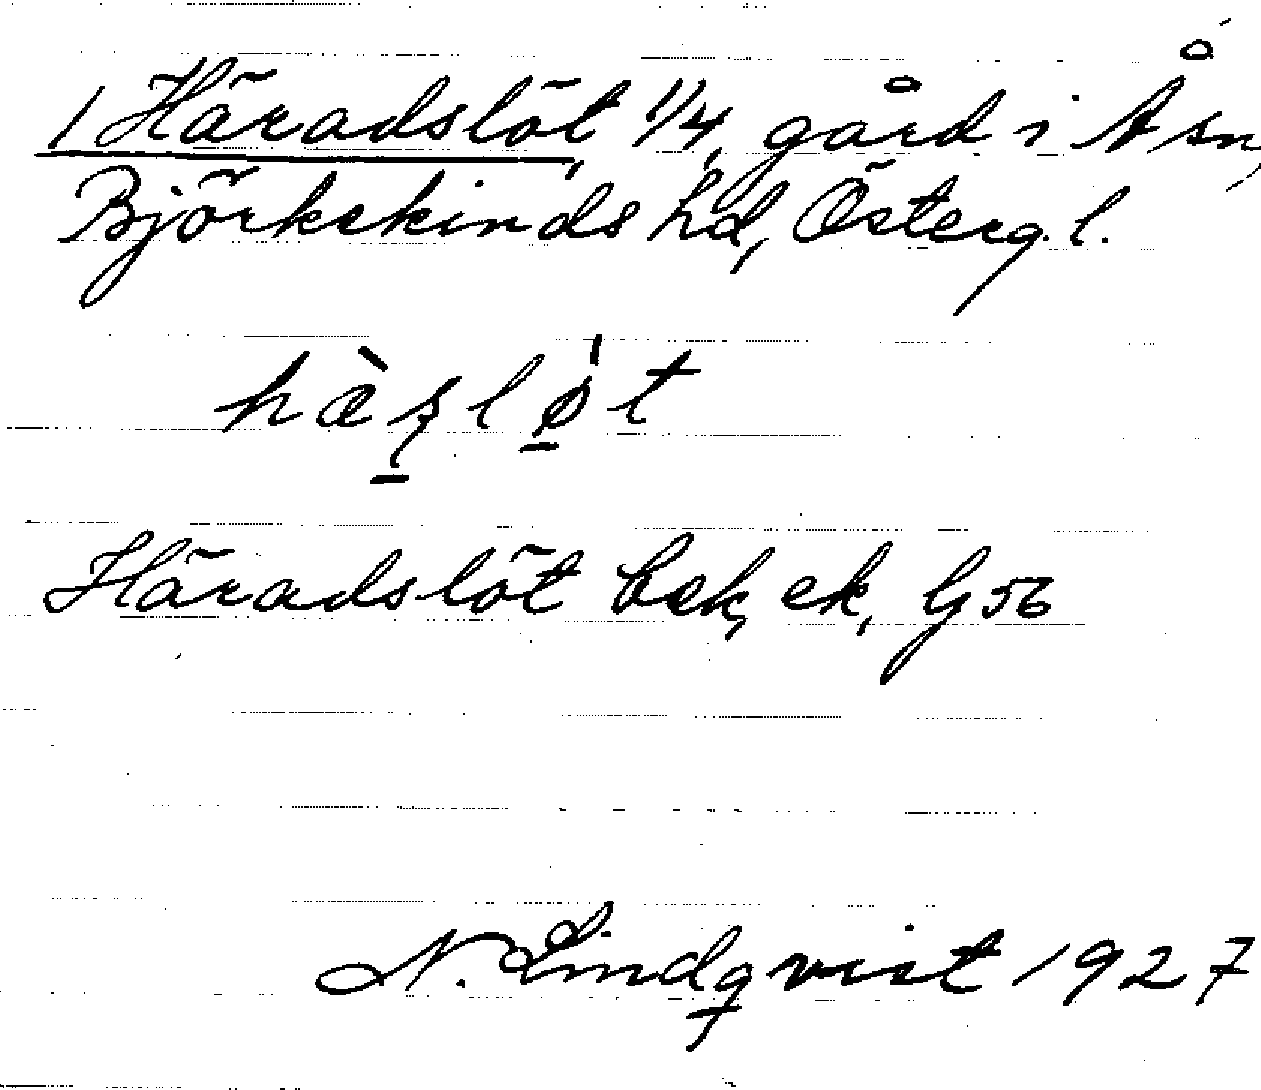 1 Häradslöt, 1/4, gård i Å sn,
Björkekinds hd, Österg. l.
hæ̀ʂlø̠̍t
Häradslöt bek, ek, G 56
N. Lindqvist 1927